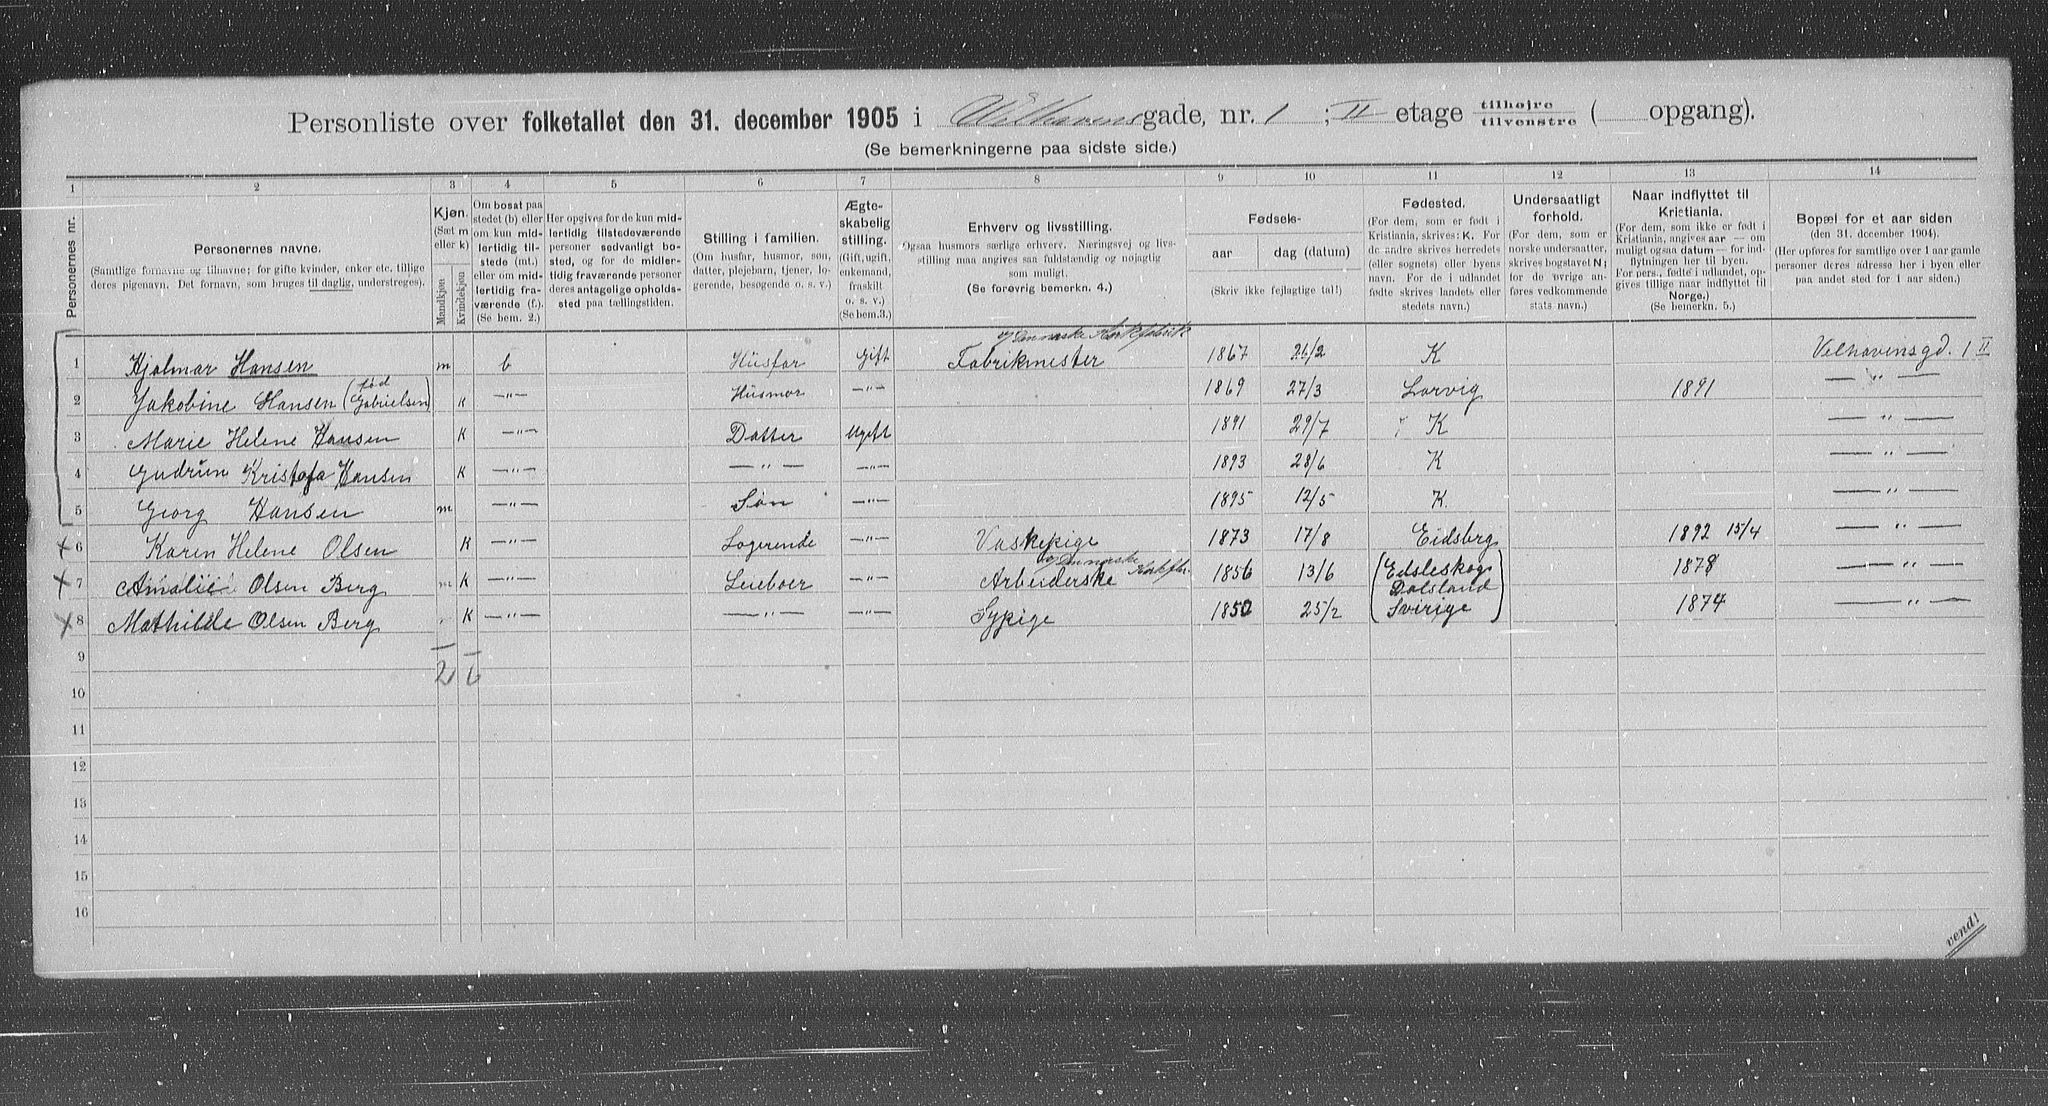 Personliste over folketallet den 31. december 1905 i Welhavensgade, nr. 1 ; II etage tilhøjre tilvenstre ( opgang).
(Se bemerkningerne paa sidste side.)
1 2 3 4 5 6 7 8 9 10 11 12 13 14
Personernes nr.
Personernes navne.
(Samtlige fornavne og tilnavne; for gifte kvinder, enker etc. tillige
deres pigenavn. Det fornavn, som bruges til daglig, understreges).
Kjøn.
(Sæt m
eller k)
Mandkjøn
Kvindekjøn
Om bosat paa
stedet (b) eller
om kun mid-
lertidig til-
stede (mt.)
eller om mid-
lertidig fra-
værende (f.).
(Se bem. 2.)
Her opgives for de kun mid-
lertidig tilstedeværende
personer sedvanligt bo-
sted, og for de midler-
tidig fraværende personer
deres antagelige opholds-
sted paa tællingstiden.
Stilling i familien.
(Om husfar, husmor, søn,
datter, plejebarn, tjener, lo-
gerende, besøgende o. s. v.)
Ægte-
skabelig
stilling.
(Gift, ugift,
enkemand,
fraskilt
o. s. v.)
(Se bem.3.)
Erhverv og livsstilling.
Ogsaa husmors særlige erhverv. Næringsvej og livs-
stilling maa angives saa fuldstændig og nøjagtig
som muligt.
(Se forøvrig bemerkn. 4.)
Fødsels-
aar
dag (datum)
(Skriv ikke fejlagtige tal!)
Fødested.
(For dem, som er født i
Kristiania, skrives: K. For
de andre skrives herredets
(eller sognets) eller byens
navn. For de i udlandet
fødte skrives landets eller
stedets navn.)
Undersaatligt
forhold.
(For dem, som er
norske undersaatter,
skrives bogstavet N;
for de øvrige an-
føres vedkommende
stats navn.)
Naar indflyttet til
Kristiania.
(For dem, som ikke er født i
Kristiania, angives aar — om
muligt ogsaa datum — for ind-
flytningen her til byen.
For pers., fødte i udlandet, op-
gives tillige naar indflyttet til
Norge.)
(Se bemerkn. 5.)
Bopæl for et aar siden
(den 31. december 1904).
(Her opføres for samtlige over 1 aar gamle
personer deres adresse her i byen eller
paa andet sted for 1 aar siden.)
1 Hjalmar Hansen m b Husfar Gift Fabrikmester 1867 26/2 K Velhavensgd. 1 II
2 Jakobine Hansen (fød Gabrielsen) K —"— Husmor —"— 1869 27/3 Larvig 1891 — " —
3 Marie Helene Hansen K —"— Datter Ugift 1891 29/7 K — " —
4 Gudrun Kristofa Hansen K —"— — " — —"— 1893 28/6 K — " —
5 Georg Hansen m —"— Søn —"— 1895 12/5 K. — " —
x 6 Karen Helene Olsen K —"— Logerende —"— Vaskepige 1873 17/8 Eidsberg 1892 15/4 — " —
x 7 Amalie Olsen Berg m K —"— Leieboer —"— Arbeiderske 1856 13/6 (Edsleskog Dalsland 1878 — " —
x 8 Mathilde Olsen Berg K —"— — " — —"— Sypige 1850 25/2 Sverige) 1874 — " —
9 2 6
10
11
12
13
14
15
16
vend!